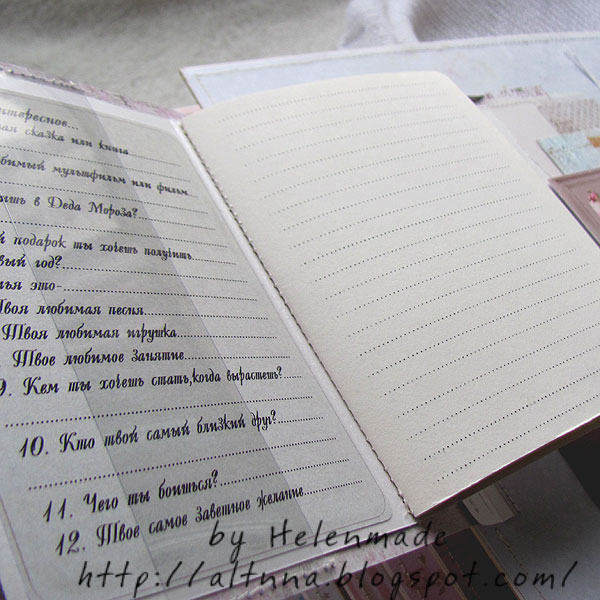 нтересное...
ая сказка или книга
бимый мультфильм или фильм...
ишь в Деда Мороза?
й подарок ты хочешь получить
вый год?
мья это-
Твоя любимая песня
Твоя любимая игрушка
. Твое любимое занятие
9. Кем ты хочешь стать,когда вырастешь?
10. Кто твой самый близкий друг?
11. Чего ты боишься?
12. Твое самое заветное желание
by Helenmade
http://altnna.blogspot.com/